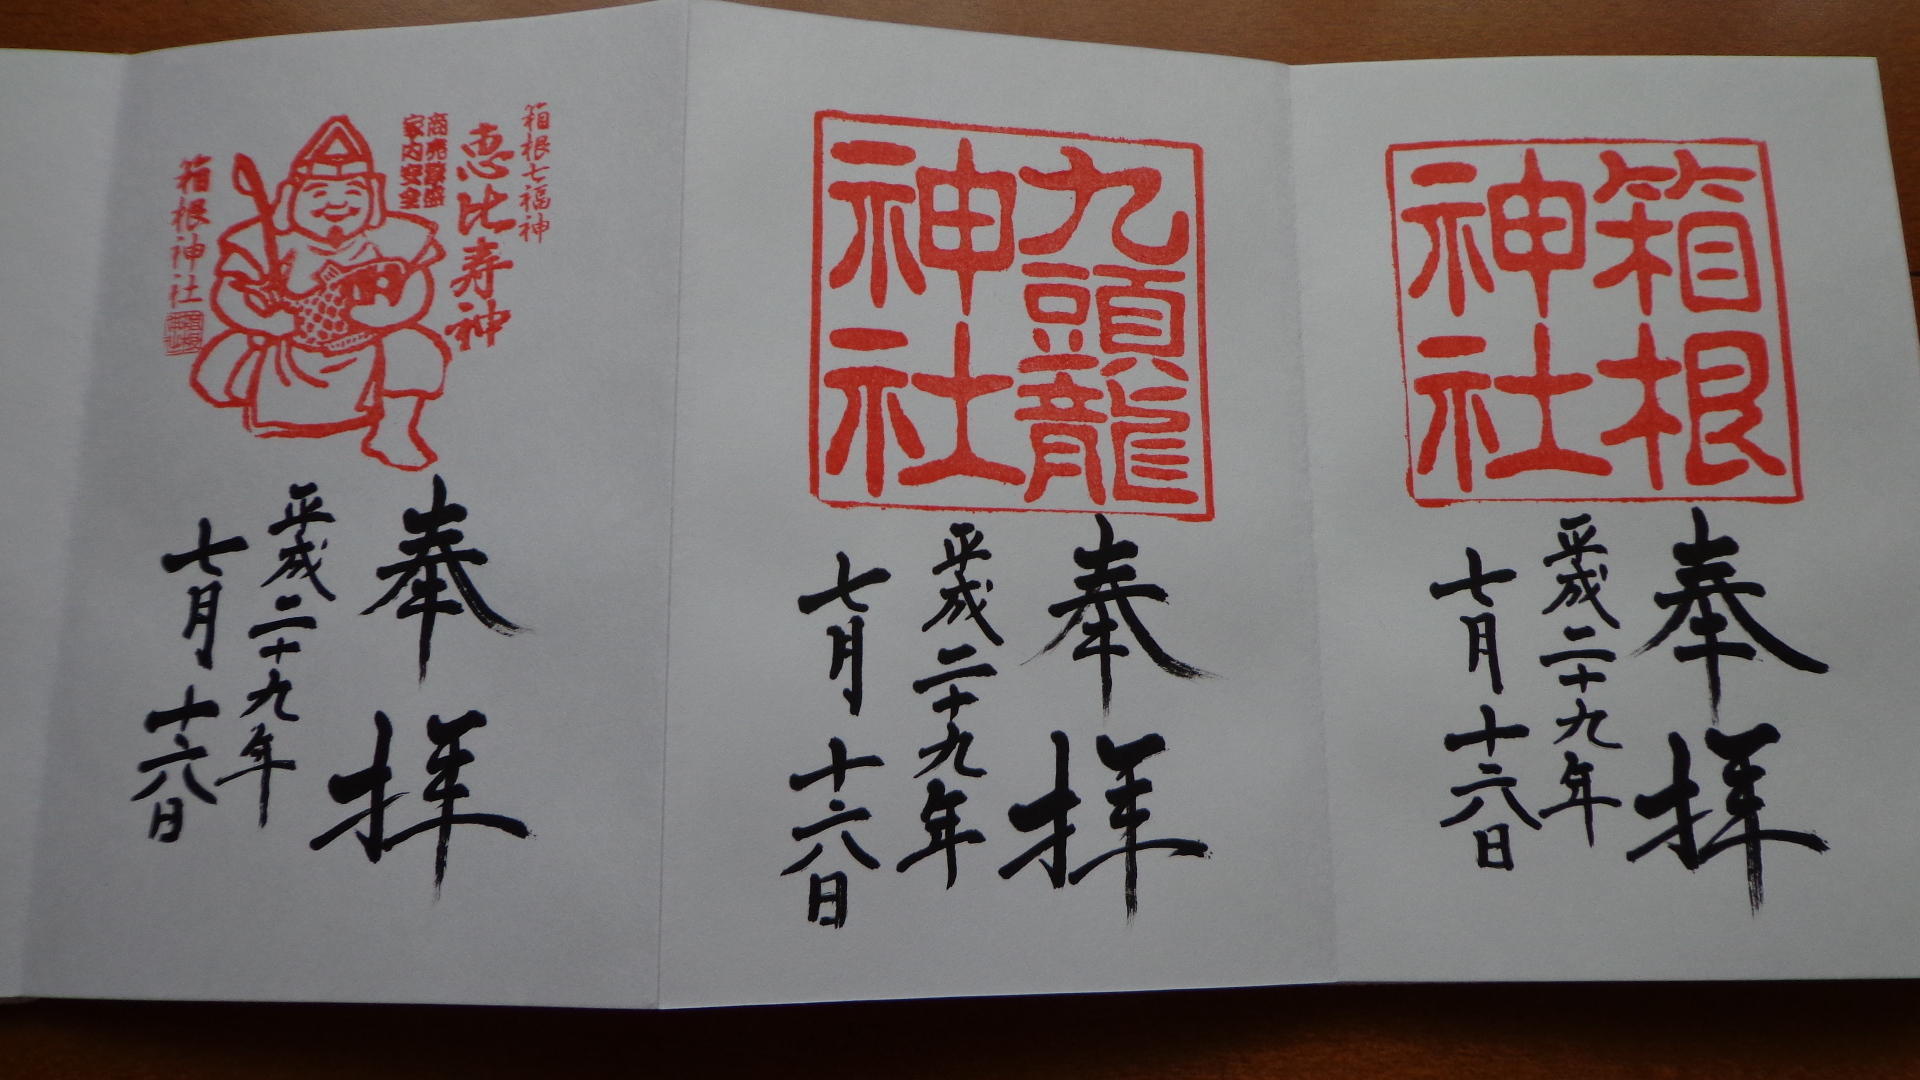 箱根
神社
奉拝
平成二十九年
七月十六日
九頭龍
神社
奉拝
平成二十九年
七月十六日
箱根七福神
恵比寿神
商売繁盛
家内安全
箱根神社
奉拝
平成二十九年
七月十六日